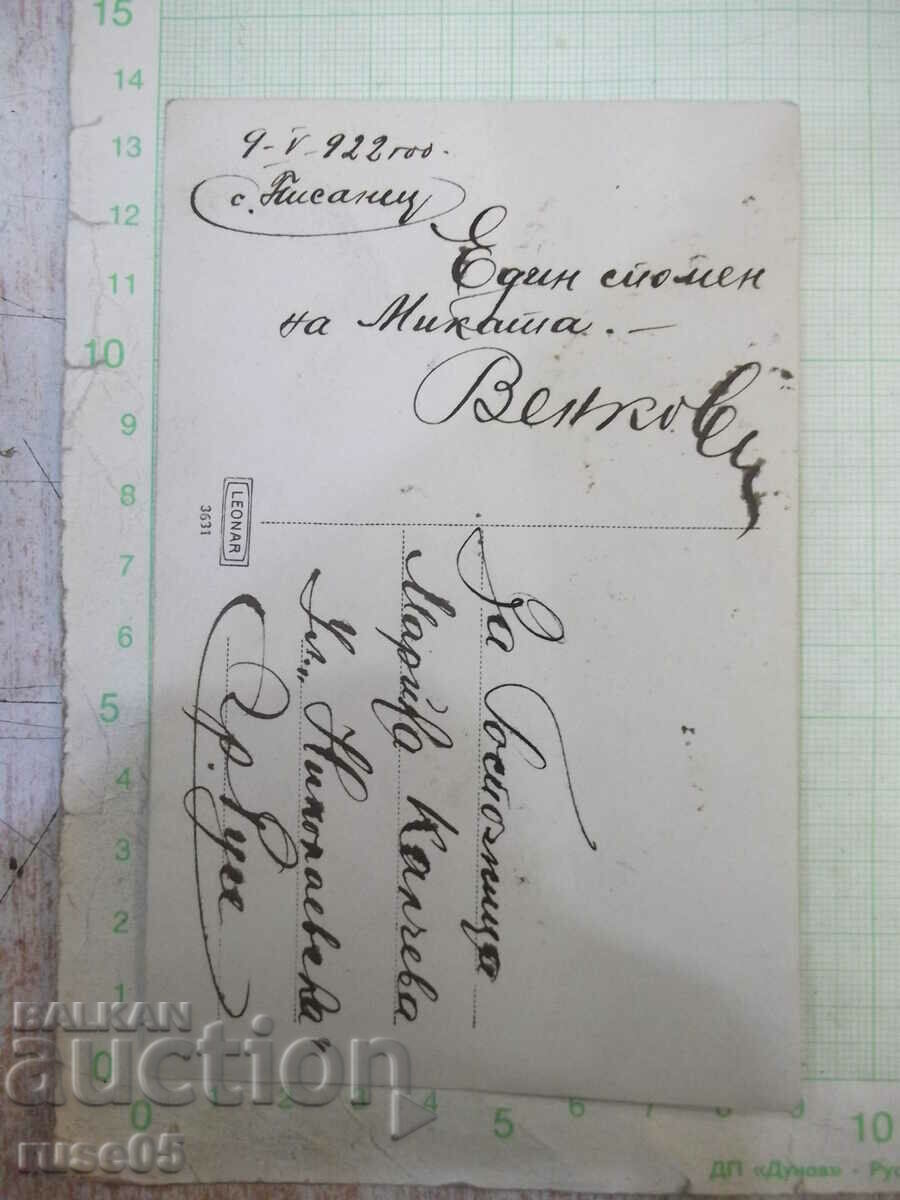 9-V-922 год.
с. Писанец
Един спомен
на Миката. –
Венков
LEONAR
3631
За Госпожица
Марийка Калчева
Ул. „Николаевска"
Гр. Русе
15
14
13
12
11
10
9
8
7
6
5
4
3
2
1
0
0 1 2 3 4 5 6 7 8 9 10
BALKAN
auction
ruse05
ДП «Дунав» - Рус